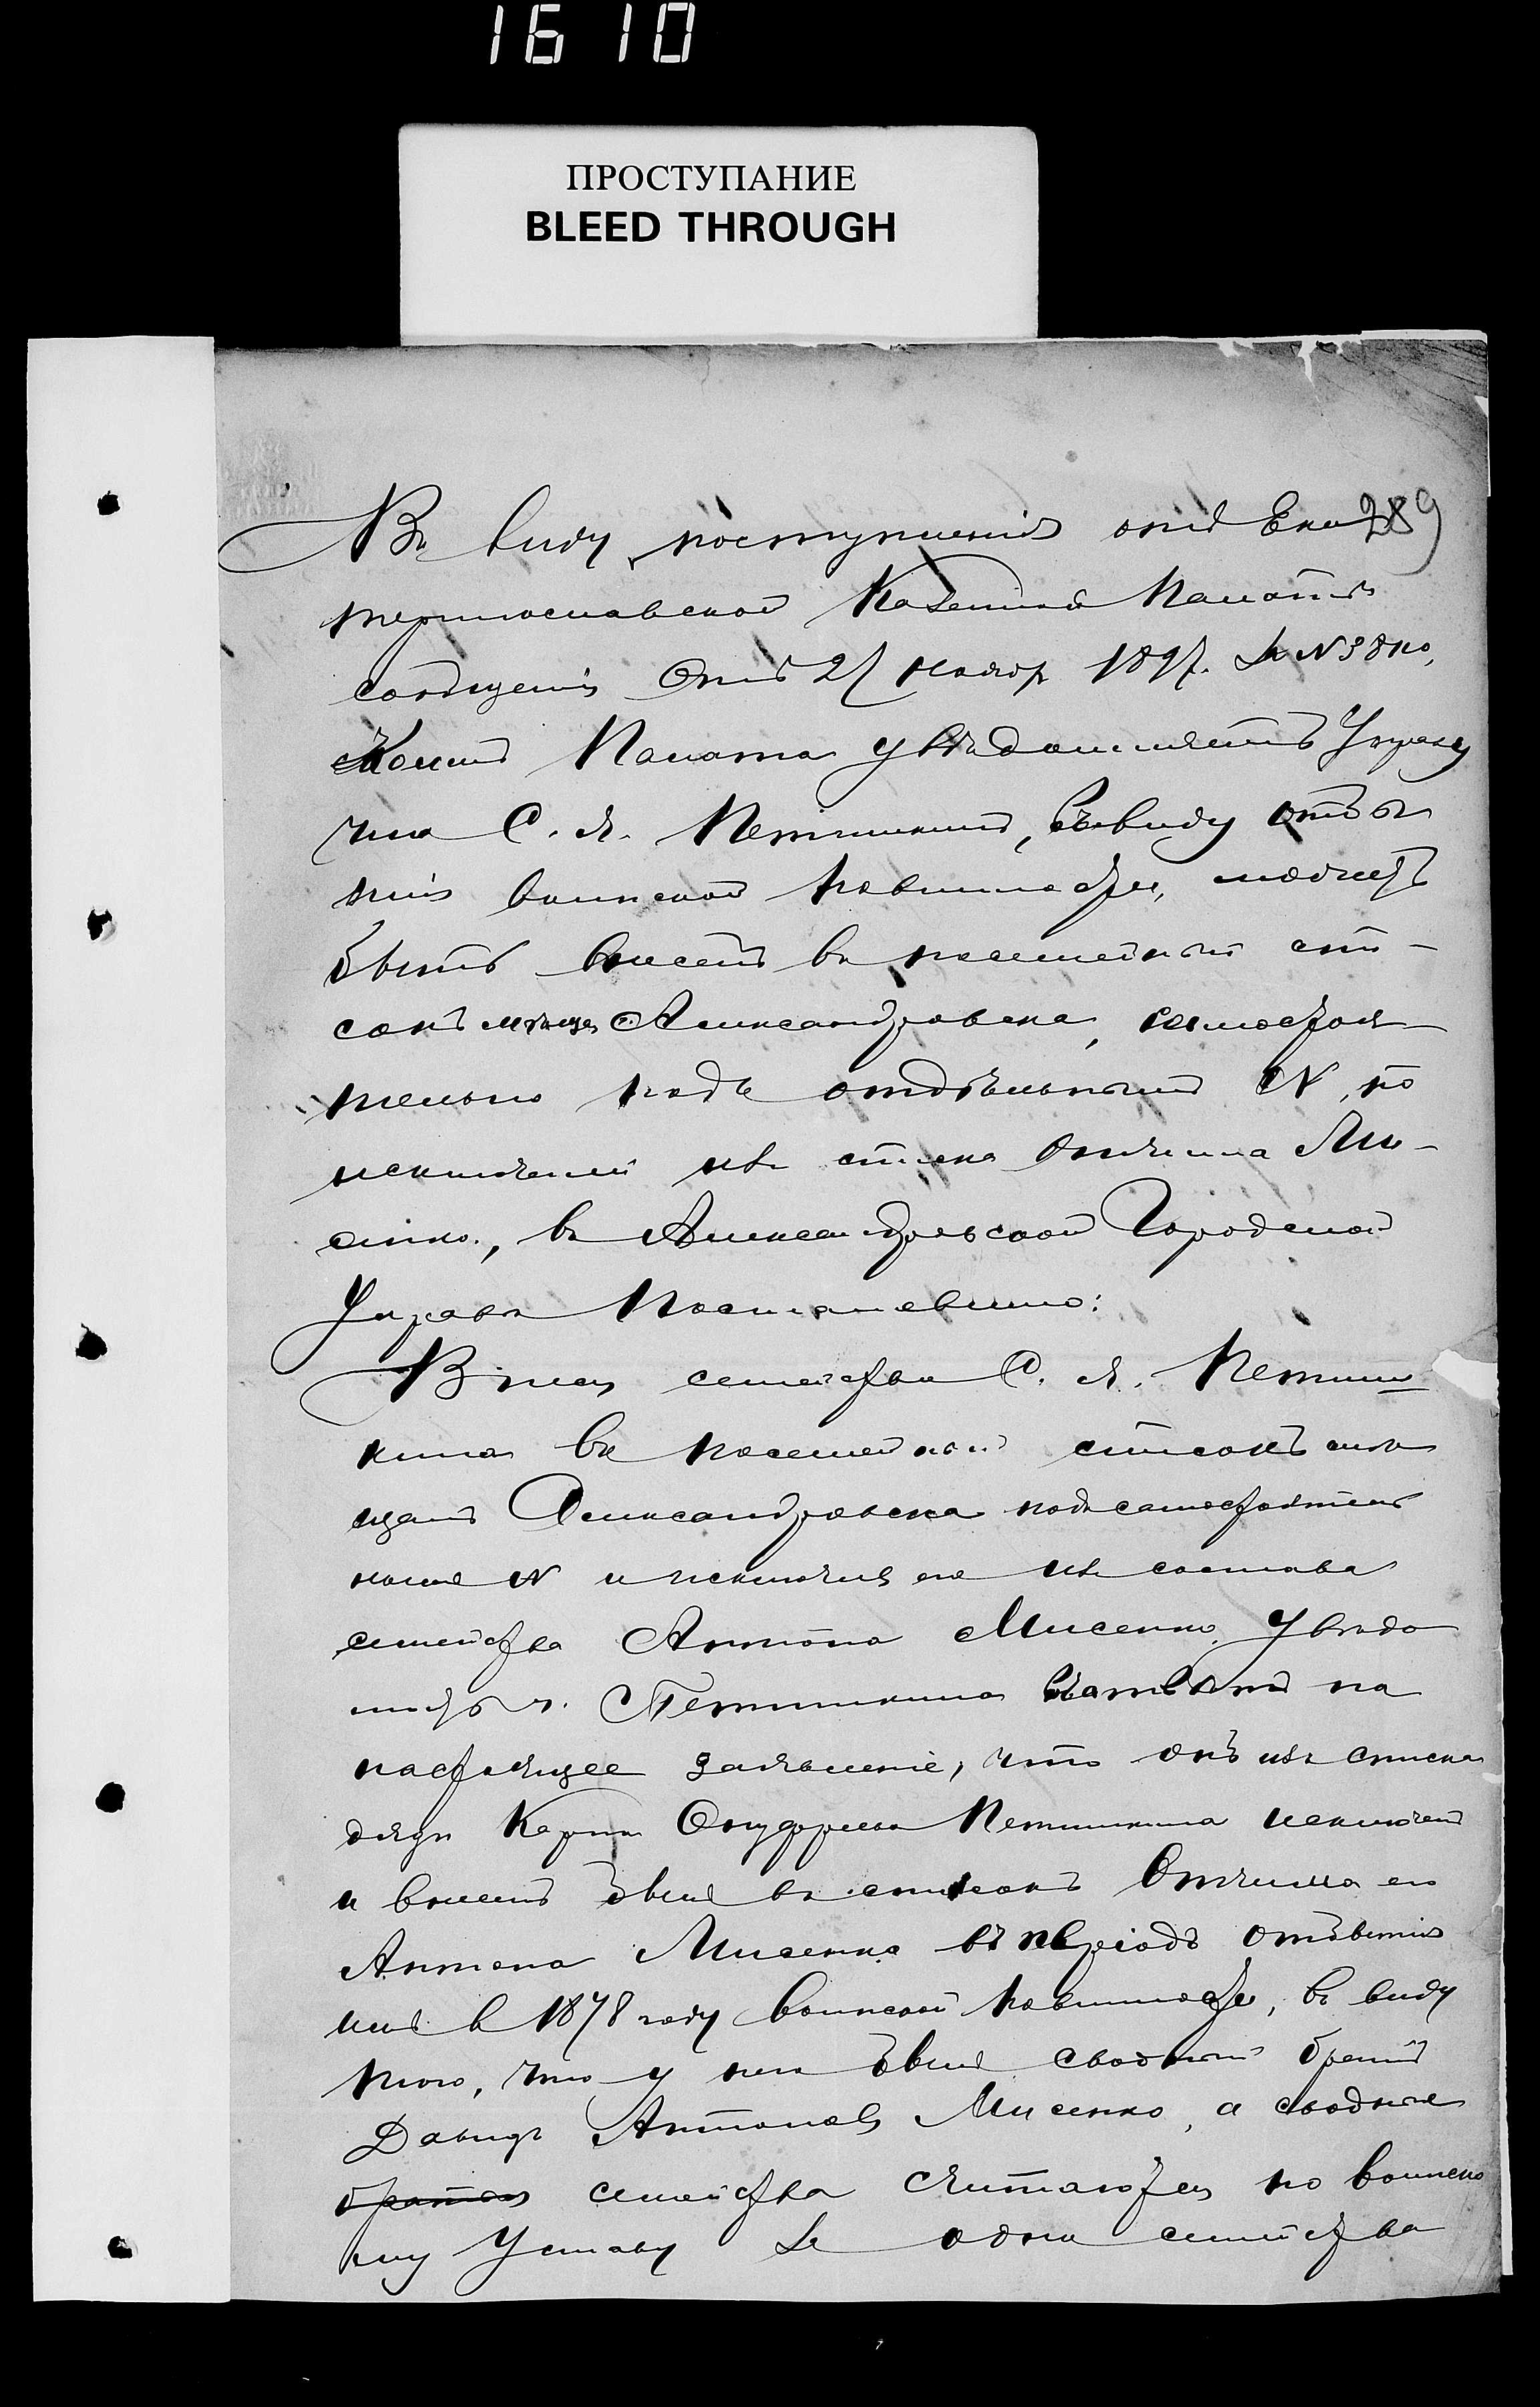 16 10
ПРОСТУПАНИЕ
BLEED THROUGH
289
Въ виду поступленія отъ Ека
теринославской Казенной Палаты
сообщенія отъ 21 ноябр 1897. за N
Палата увѣдомляетъ Управу
что С. Я. Петишкинъ, въ виду отбы
тія воинской повинности, можетъ
быть внесенъ въ посемейный спи-
сокъ мѣщан Александровска, самостоя
тельно подъ отдѣльнымъ N, по
исключеніи изъ списка отчима Ми-
сенко, въ Александровской Городской
Управѣ постановлено:
Внеся семейства С. Я. Петиш
кина въ посемейный списокъ мѣ
щанъ Александровска подъ самостоятель
нымъ N и исключивъ его изъ состава
семейства Антона Мисенко, увѣдо
мить г. Петишкина въ отвѣтъ на
настоящее заявленіе, что онъ изъ списка
дяди Карпа Онуфріева Петишкина исключенъ
и внесенъ былъ въ списокъ отчима его
Антона Мисенко въ періодъ отбытія
имъ в 1878 году воинской повинности, въ виду
того, что у него былъ сводный братъ
Давидъ Антоновъ Мисенко, а сводные
братья семейства считаются по воинско
му Уставу за одно семейство